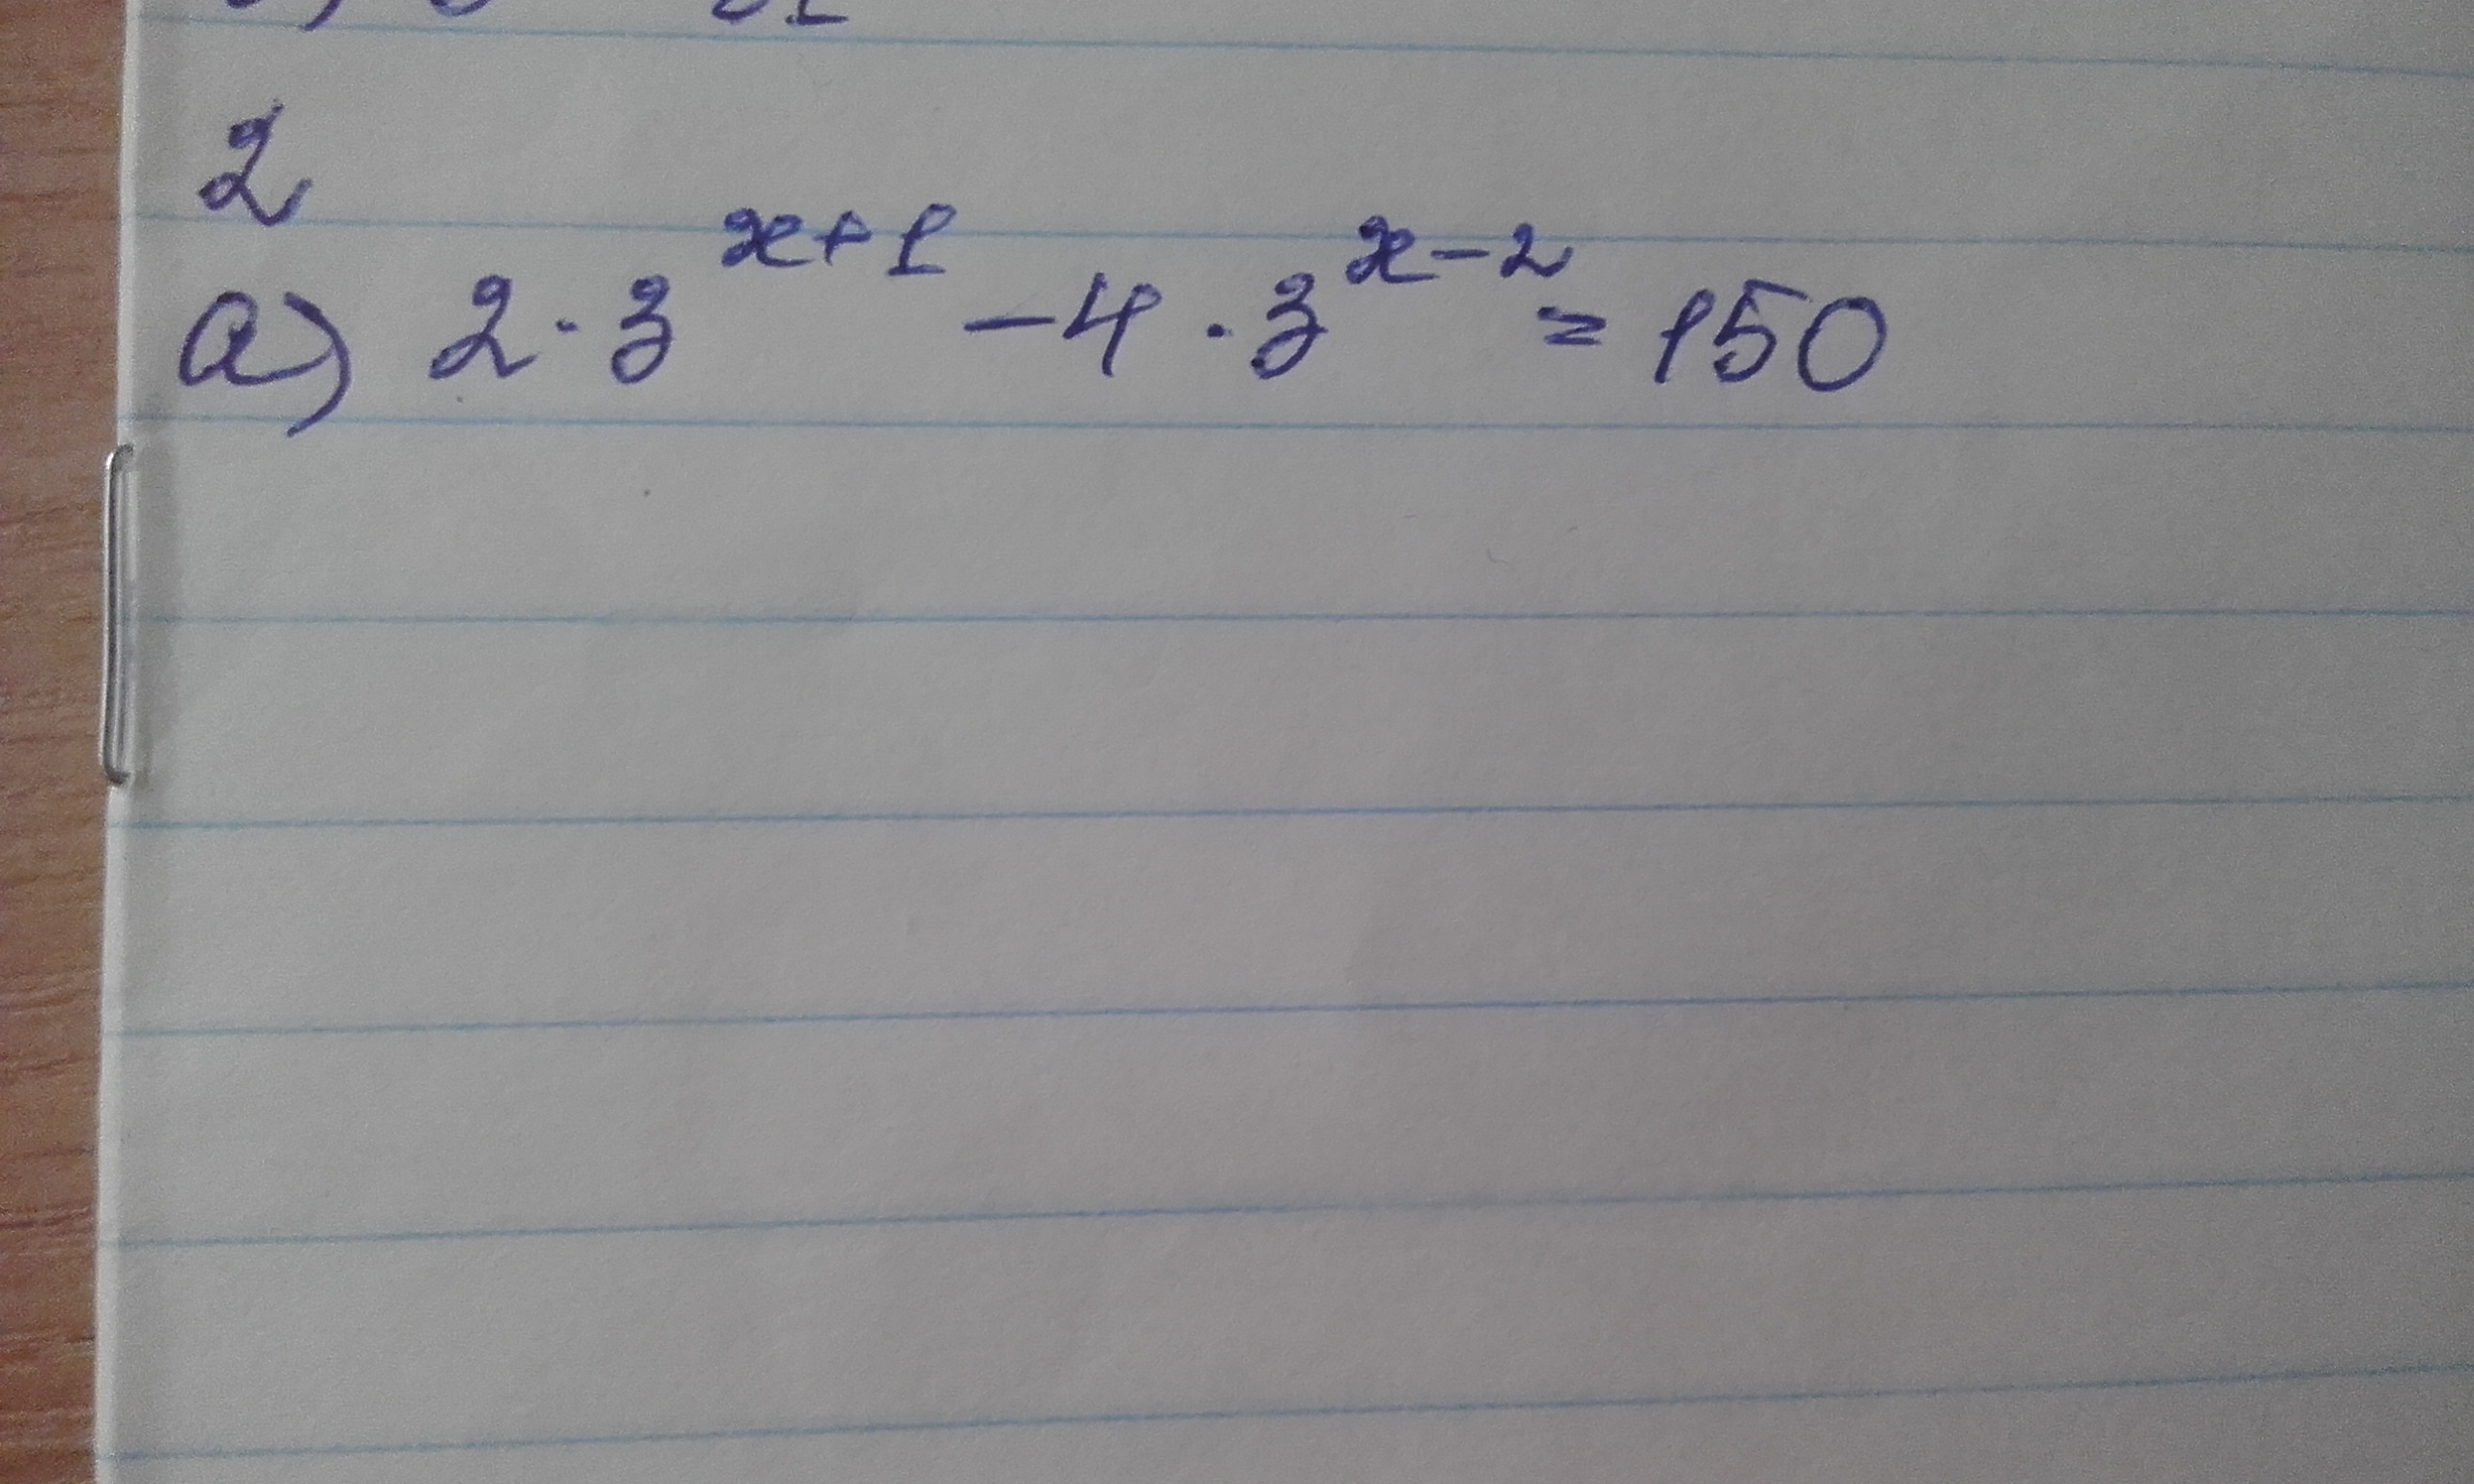 2
a) 2 · 3^{x+1} - 4 · 3^{x-2} = 150